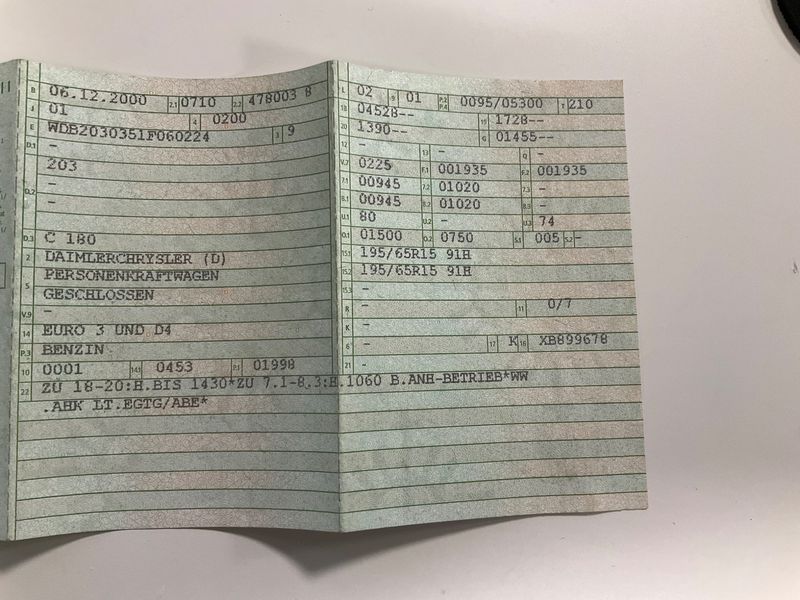 B 06.12.2000 2.1 0710 2.2 478003 8
J 01 4 0200
E WDB2030351F060224 3 9
D.1 -
203
D.2 -
-
D.3 C 180
2 DAIMLERCHRYSLER (D)
5 PERSONENKRAFTWAGEN
GESCHLOSSEN
V.9 -
14 EURO 3 UND D4
P.3 BENZIN
10 0001 14.1 0453 P.1 01998
L 02 9 01 P.2 P.4 0095/05300 T 210
18 04528-- 19 1728--
20 1390-- G 01455--
12 - 13 - Q -
V.7 0225 F.1 001935 F.2 001935
7.1 00945 7.2 01020 7.3 -
8.1 00945 8.2 01020 8.3 -
U.1 80 U.2 - U.3 74
O.1 01500 O.2 0750 S.1 005 S.2 -
15.1 195/65R15 91H
15.2 195/65R15 91H
15.3 -
R - 11 0/7
K -
6 - 17 K 16 XB899678
21 -
22 ZU 18-20:H.BIS 1430*ZU 7.1-8.3:H.1060 B.ANH-BETRIEB*WW
.AHK LT.EGTG/ABE*